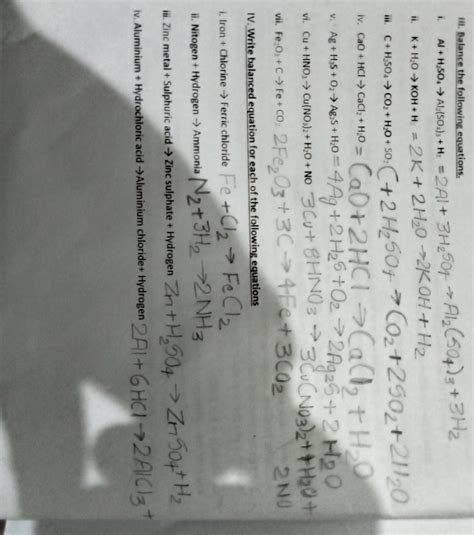 III. Balance the following equations.
i. Al + H₂SO₄ → Al₂(SO₄)₃ + H₂ = 2Al + 3H₂SO₄ → Al₂(SO₄)₃ + 3H₂
ii. K + H₂O → KOH + H₂ = 2K + 2H₂O → 2KOH + H₂
iii. C + H₂SO₄ → CO₂ + H₂O + SO₂ C + 2H₂SO₄ → CO₂ + 2SO₂ + 2H₂O
iv. CaO + HCl → CaCl₂ + H₂O = CaO + 2HCl → CaCl₂ + H₂O
v. Ag + H₂S + O₂ → Ag₂S + H₂O = 4Ag + 2H₂S + O₂ → 2Ag₂S + 2H₂O
vi. Cu + HNO₃ → Cu(NO₃)₂ + H₂O + NO 3Cu + 8HNO₃ → 3Cu(NO₃)₂ + 4H₂O +
2NO
vii. Fe₂O₃ + C → Fe + CO₂ 2Fe₂O₃ + 3C → 4Fe + 3CO₂
IV. Write balanced equation for each of the following equations
i. Iron + Chlorine → Ferric chloride Fe + Cl₂ → FeCl₂
ii. Nitogen + Hydrogen → Ammonia N₂ + 3H₂ → 2NH₃
iii. Zinc metal + Sulphuric acid → Zinc sulphate + Hydrogen Zn + H₂SO₄ → ZnSO₄ + H₂
iv. Aluminium + Hydrochloric acid → Aluminium chloride + Hydrogen 2Al + 6HCl → 2AlCl₃ +